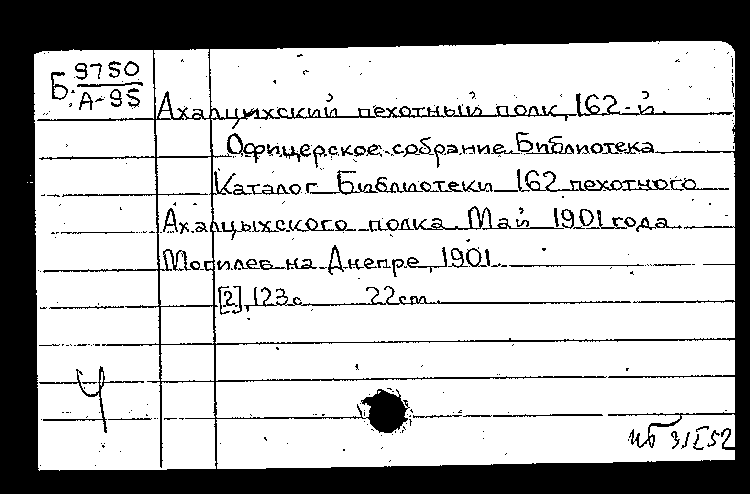 Б: 9750
А-95
Ахалцихский пехотный полк, 162-й.
Офицерское собрание. Библиотека
Каталог Библиотеки 162 пехотного
Ахалцыхского полка. Май 1901 года
Могилев на Днепре, 1901.
[2], 123с 22cm.
Ч